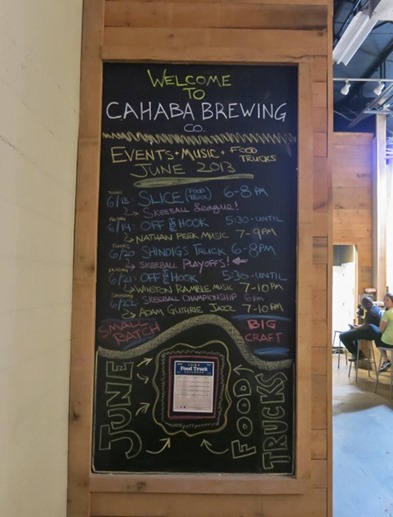 WELCOME
TO
CAHABA BREWING
CO.
EVENTS • MUSIC • FOOD TRUCKS
JUNE 2013
6/13: SLICE (FOOD TRUCK) 6-8 PM
SKEEBALL League!
6/14: OFF THE HOOK 5:30-UNTIL
NATHAN PEEK MUSIC 7-9PM
6/20: SHINDIGS TRUCK 6-8PM
SKEEBALL PLAYOFFS!
6/21: OFF THE HOOK 5:30-UNTIL
WINSTON RAMBLE MUSIC 7-10PM
SKEEBALL CHAMPIONSHIP 6PM
ADAM GUTHRIE JAZZ 7-10PM
SMALL BATCH
BIG CRAFT
JUNE
Food Truck
FOOD
TRUCKS